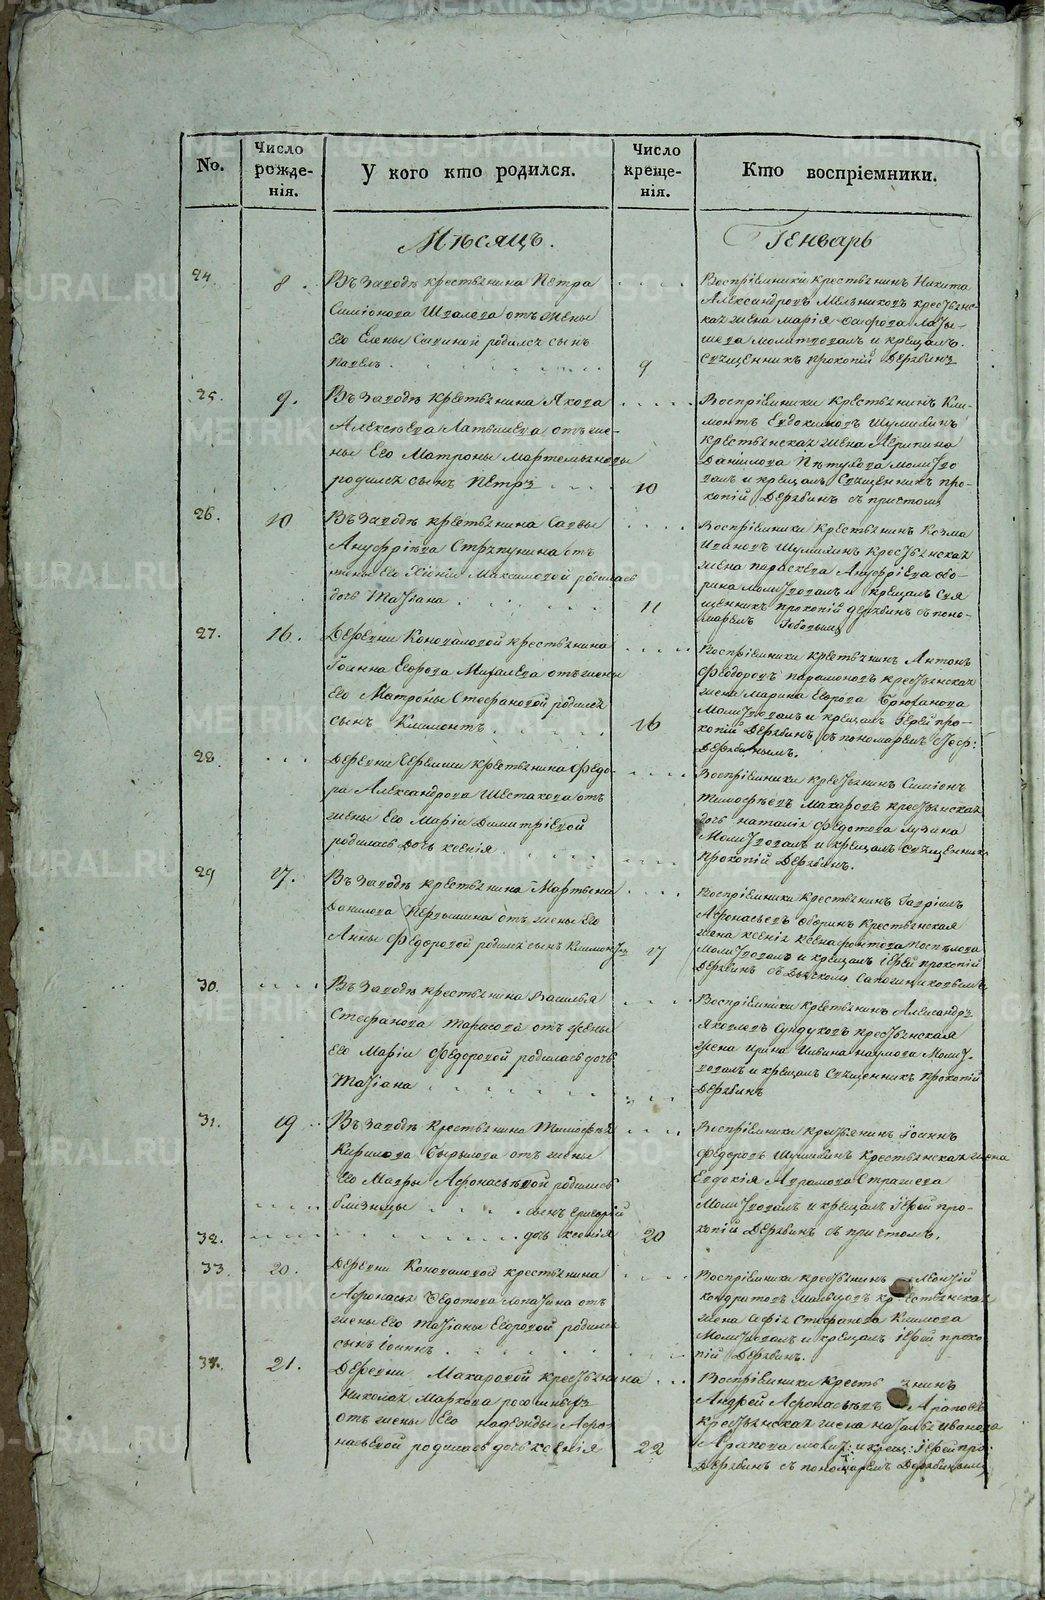 No.
Число рожденія.
У кого кто родился.
Число крещенія.
Кто воспріемники.
Мѣсяцъ.
Генварь
24.
8.
Въ Заводѣ крестьянина Петра
Симіонова отъ жены
его Елены Савиной родился сынъ
Павелъ
9
Воспріемники крестьянинъ Никита
Александровъ Мельниковъ крестьянс-
кая жена Марія
молитвовалъ и крещалъ
священникъ Прокопій Дерябинъ
25.
9.
Въ Заводѣ крестьянина Якова
Алексѣева Латышева отъ же-
ны его Матроны Мартемьяновы
родился сынъ Петръ
10
Воспріемники крестьянинъ Кли-
монтъ Евдокимовъ Шумилинъ
крестьянская жена Агрипина
Даніилова Пѣтухова молитво
валъ и крещалъ Священникъ Про-
копій Дерябинъ съ причтомъ
26.
10
Въ Заводѣ крестьянина Саввы
Ануфріева Стряпунина отъ
жены его Хіоніи Максимовой родилась
дочь Татіана
11
Воспріемники крестьянинъ Козма
Ивановъ Шумилинъ крестьянская
жена Параскева Ануфріева Обо-
рина молитвовалъ и крещалъ Свя
щенникъ Прокопій Дерябинъ съ поно-
маремъ
27.
16.
Деревни Коноваловой крестьянина
Іоанна Егорова Михалева отъ жены
его Матроны Стефановой родился
сынъ Климонтъ
16
Воспріемники крестьянинъ Антонъ
Феодоровъ Парамоновъ крестьянская
жена Марина Егорова Брюханова
молитвовалъ и крещалъ Іерей Про-
копій Дерябинъ съ пономаремъ
Дерябинымъ.
28.
Деревни крестьянина Федо-
ра Александрова Шестакова отъ
жены его Маріи Димитріевой
родилась дочь Ксенія
Воспріемники крестьянинъ Симіонъ
Тимофѣевъ Макаровъ крестьянская
дочь Наталія Федотова Лузина
молитвовалъ и крещалъ Священникъ
Прокопій Дерябинъ.
29
17.
Въ Заводѣ крестьянина Мартына
Данилова отъ жены его
Анны Федоровой родился сынъ Климонтъ
17
Воспріемники крестьянинъ Гавріилъ
Афонасьевъ Оборинъ крестьянская
жена Ксенія Ксенафонтова Поспѣлова
молитвовалъ и крещалъ Іерей Прокопій
Дерябинъ съ дьячкомъ Сапожниковымъ
30.
Въ Заводѣ крестьянина Василья
Стефанова Тарасова отъ жены
его Маріи Федоровой родилась дочь
Татіана
Воспріемники крестьянинъ Александръ
Яковлевъ Сундуковъ крестьянская
жена Ирина Наумова молит-
вовалъ и крещалъ Священникъ Прокопій
Дерябинъ
31.
19
Въ Заводѣ крестьянина Тимофѣя
Кирилова отъ жены
его Мавры Афонасьевой родились
близнецы сынъ Григорій
32.
дочь Ксенія
20
Воспріемники крестьянинъ Іоаннъ
Федоровъ Шумилинъ крестьянская жена
Евдокія Абрамова
молитвовалъ и крещалъ Іерей Про-
копій Дерябинъ съ причтомъ.
33.
20.
Деревни Коноваловой крестьянина
Афонасья Федотова Лопатина отъ
жены его Татіаны Егоровой родился
сынъ Іоаннъ
Воспріемники крестьянинъ Леонтій
Кондратовъ Мальцовъ крестьянская
жена Стефанова Климова
молитвовалъ и крещалъ Іерей Проко
пій Дерябинъ.
34.
21.
Деревни Макаровой крестьянина
Николая Маркова
отъ жены его Надежды Афо-
насьевой родилась дочь Ксенія
22
Воспріемники крестьянинъ
Андрей Афонасьевъ Араповъ
крестьянская жена Наталья Иванова
Арапова молит: и крещ: Іерей Про:
Дерябинъ съ пономаремъ Дерябинымъ